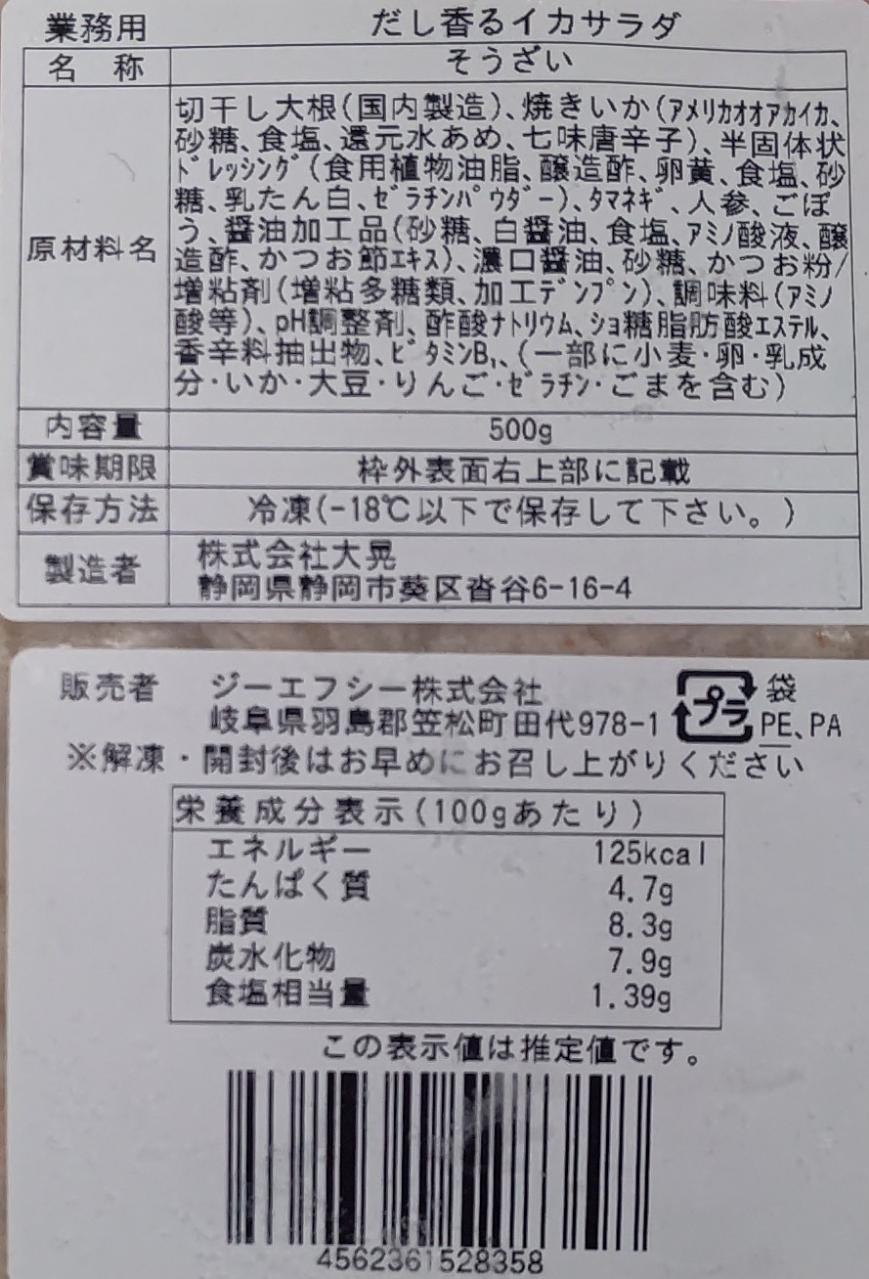 業務用 だし香るイカサラダ
名 称 そうざい
原材料名
切干し大根(国内製造)、焼きいか(アメリカオオアカイカ、
砂糖、食塩、還元水あめ、七味唐辛子)、半固体状
ドレッシング(食用植物油脂、醸造酢、卵黄、食塩、砂
糖、乳たん白、ゼラチンパウダー)、タマネギ、人参、ごぼ
う、醤油加工品(砂糖、白醤油、食塩、アミノ酸液、醸
造酢、かつお節エキス)、濃口醤油、砂糖、かつお粉/
増粘剤(増粘多糖類、加工デンプン)、調味料(アミノ
酸等)、pH調整剤、酢酸ナトリウム、ショ糖脂肪酸エステル、
香辛料抽出物、ビタミンB₁、(一部に小麦・卵・乳成
分・いか・大豆・りんご・ゼラチン・ごまを含む)
内容量 500g
賞味期限 枠外表面右上部に記載
保存方法 冷凍(-18℃以下で保存して下さい。)
製造者 株式会社大晃
静岡県静岡市葵区沓谷6-16-4
販売者 ジーエフシー株式会社
岐阜県羽島郡笠松町田代978-1
プラ 袋
PE、PA
※解凍・開封後はお早めにお召し上がりください
栄養成分表示(100gあたり)
エネルギー 125kcal
たんぱく質 4.7g
脂質 8.3g
炭水化物 7.9g
食塩相当量 1.39g
この表示値は推定値です。
4562361528358